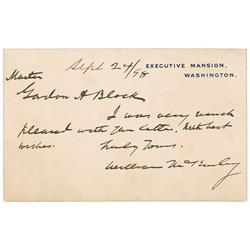 Sept 24/98
EXECUTIVE MANSION,
WASHINGTON.
Master
Gordon A Block
I was very much
pleased with your letter. With best
wishes.
Truly Yours.
William McKinley